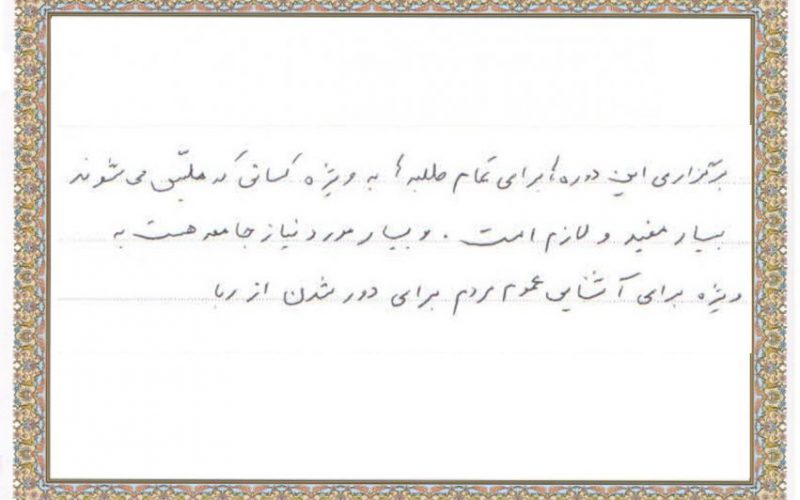 برگزاری این دوره‌ها برای تمام طلبه‌ها به ویژه کسانی که ملبّس می‌شوند
بسیار مفید و لازم است. و بسیار مورد نیاز جامعه هست به
ویژه برای آشنایی عموم مردم برای دور شدن از ربا